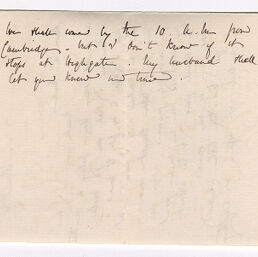 We shall come by the 10. A.M. from
Cambridge - but I don't know if it
stops at Highgate. My husband shall
let you know in time.